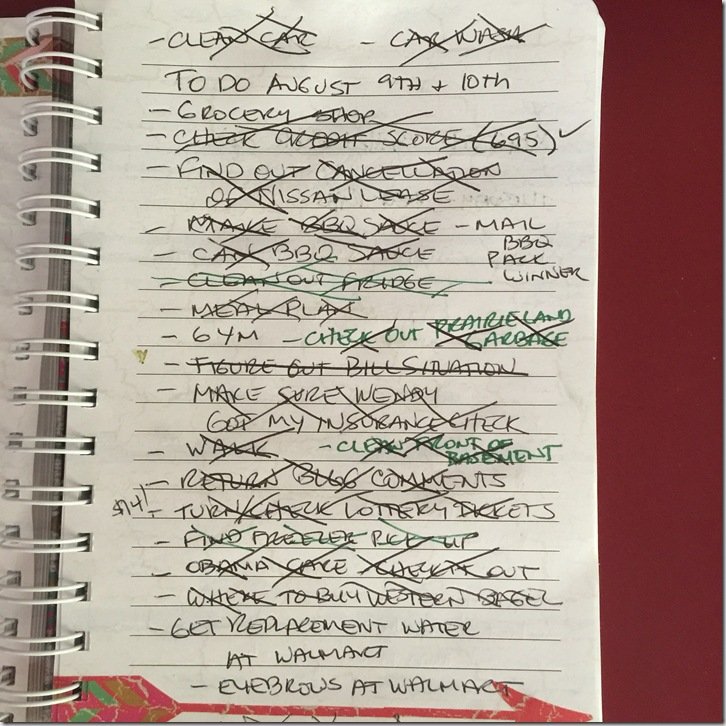 - CLEAN CAR - CAR WASH
TO DO AUGUST 9TH + 10TH
- GROCERY SHOP
- CHECK CREDIT SCORE (695) ✓
- FIND OUT CANCELLATION
OF NISSAN LEASE
- MAKE BBQ SAUCE - MAIL
BBQ
- CAN BBQ SAUCE PACK
WINNER
- CLEAN OUT FRIDGE
- MEAL PLAN
- GYM - CHECK OUT PRAIRIELAND
GARBAGE
- FIGURE OUT BILL SITUATION
- MAKE SURE WENDY
GOT MY INSURANCE CHECK
- WALK - CLEAN FRONT OF
BASEMENT
- RETURN BLOG COMMENTS
$14! - TURN/CHECK LOTTERY TICKETS
- FIND FREEZER PICK UP
- OBAMA CARE CHECK IT OUT
- WHERE TO BUY WESTERN BAGEL
- GET REPLACEMENT WATER
AT WALMART
- EYEBROWS AT WALMART